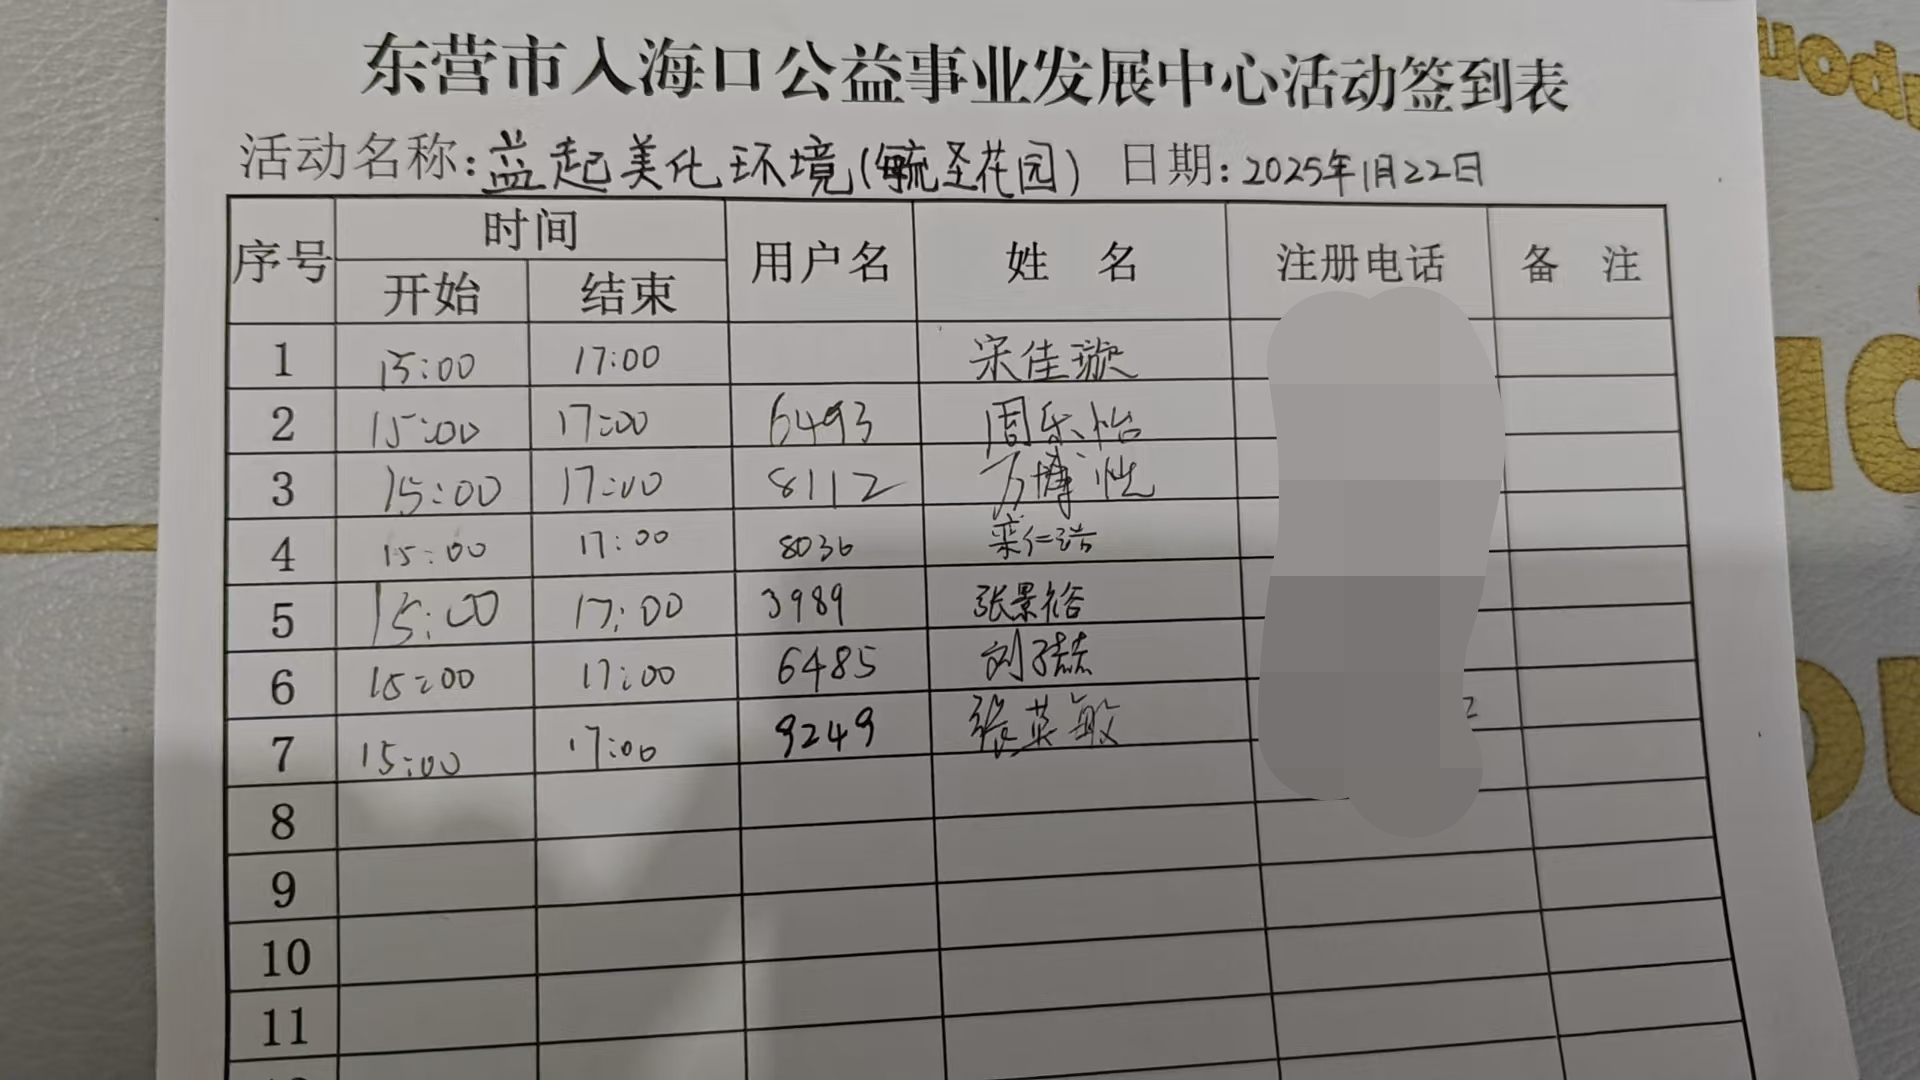 东营市入海口公益事业发展中心活动签到表
活动名称:益起美化环境(毓圣花园) 日期:2025年1月22日
序号 时间 用户名 姓 名 注册电话 备 注
开始 结束
1 15:00 17:00 宋佳璇
2 15:00 17:00 6493 周乐怡
3 15:00 17:00 8112 万博
4 15:00 17:00 8036 栾仁浩
5 15:00 17:00 3989 张景裕
6 15:00 17:00 6485 刘子喆
7 15:00 17:00 9249 张英敏
8
9
10
11